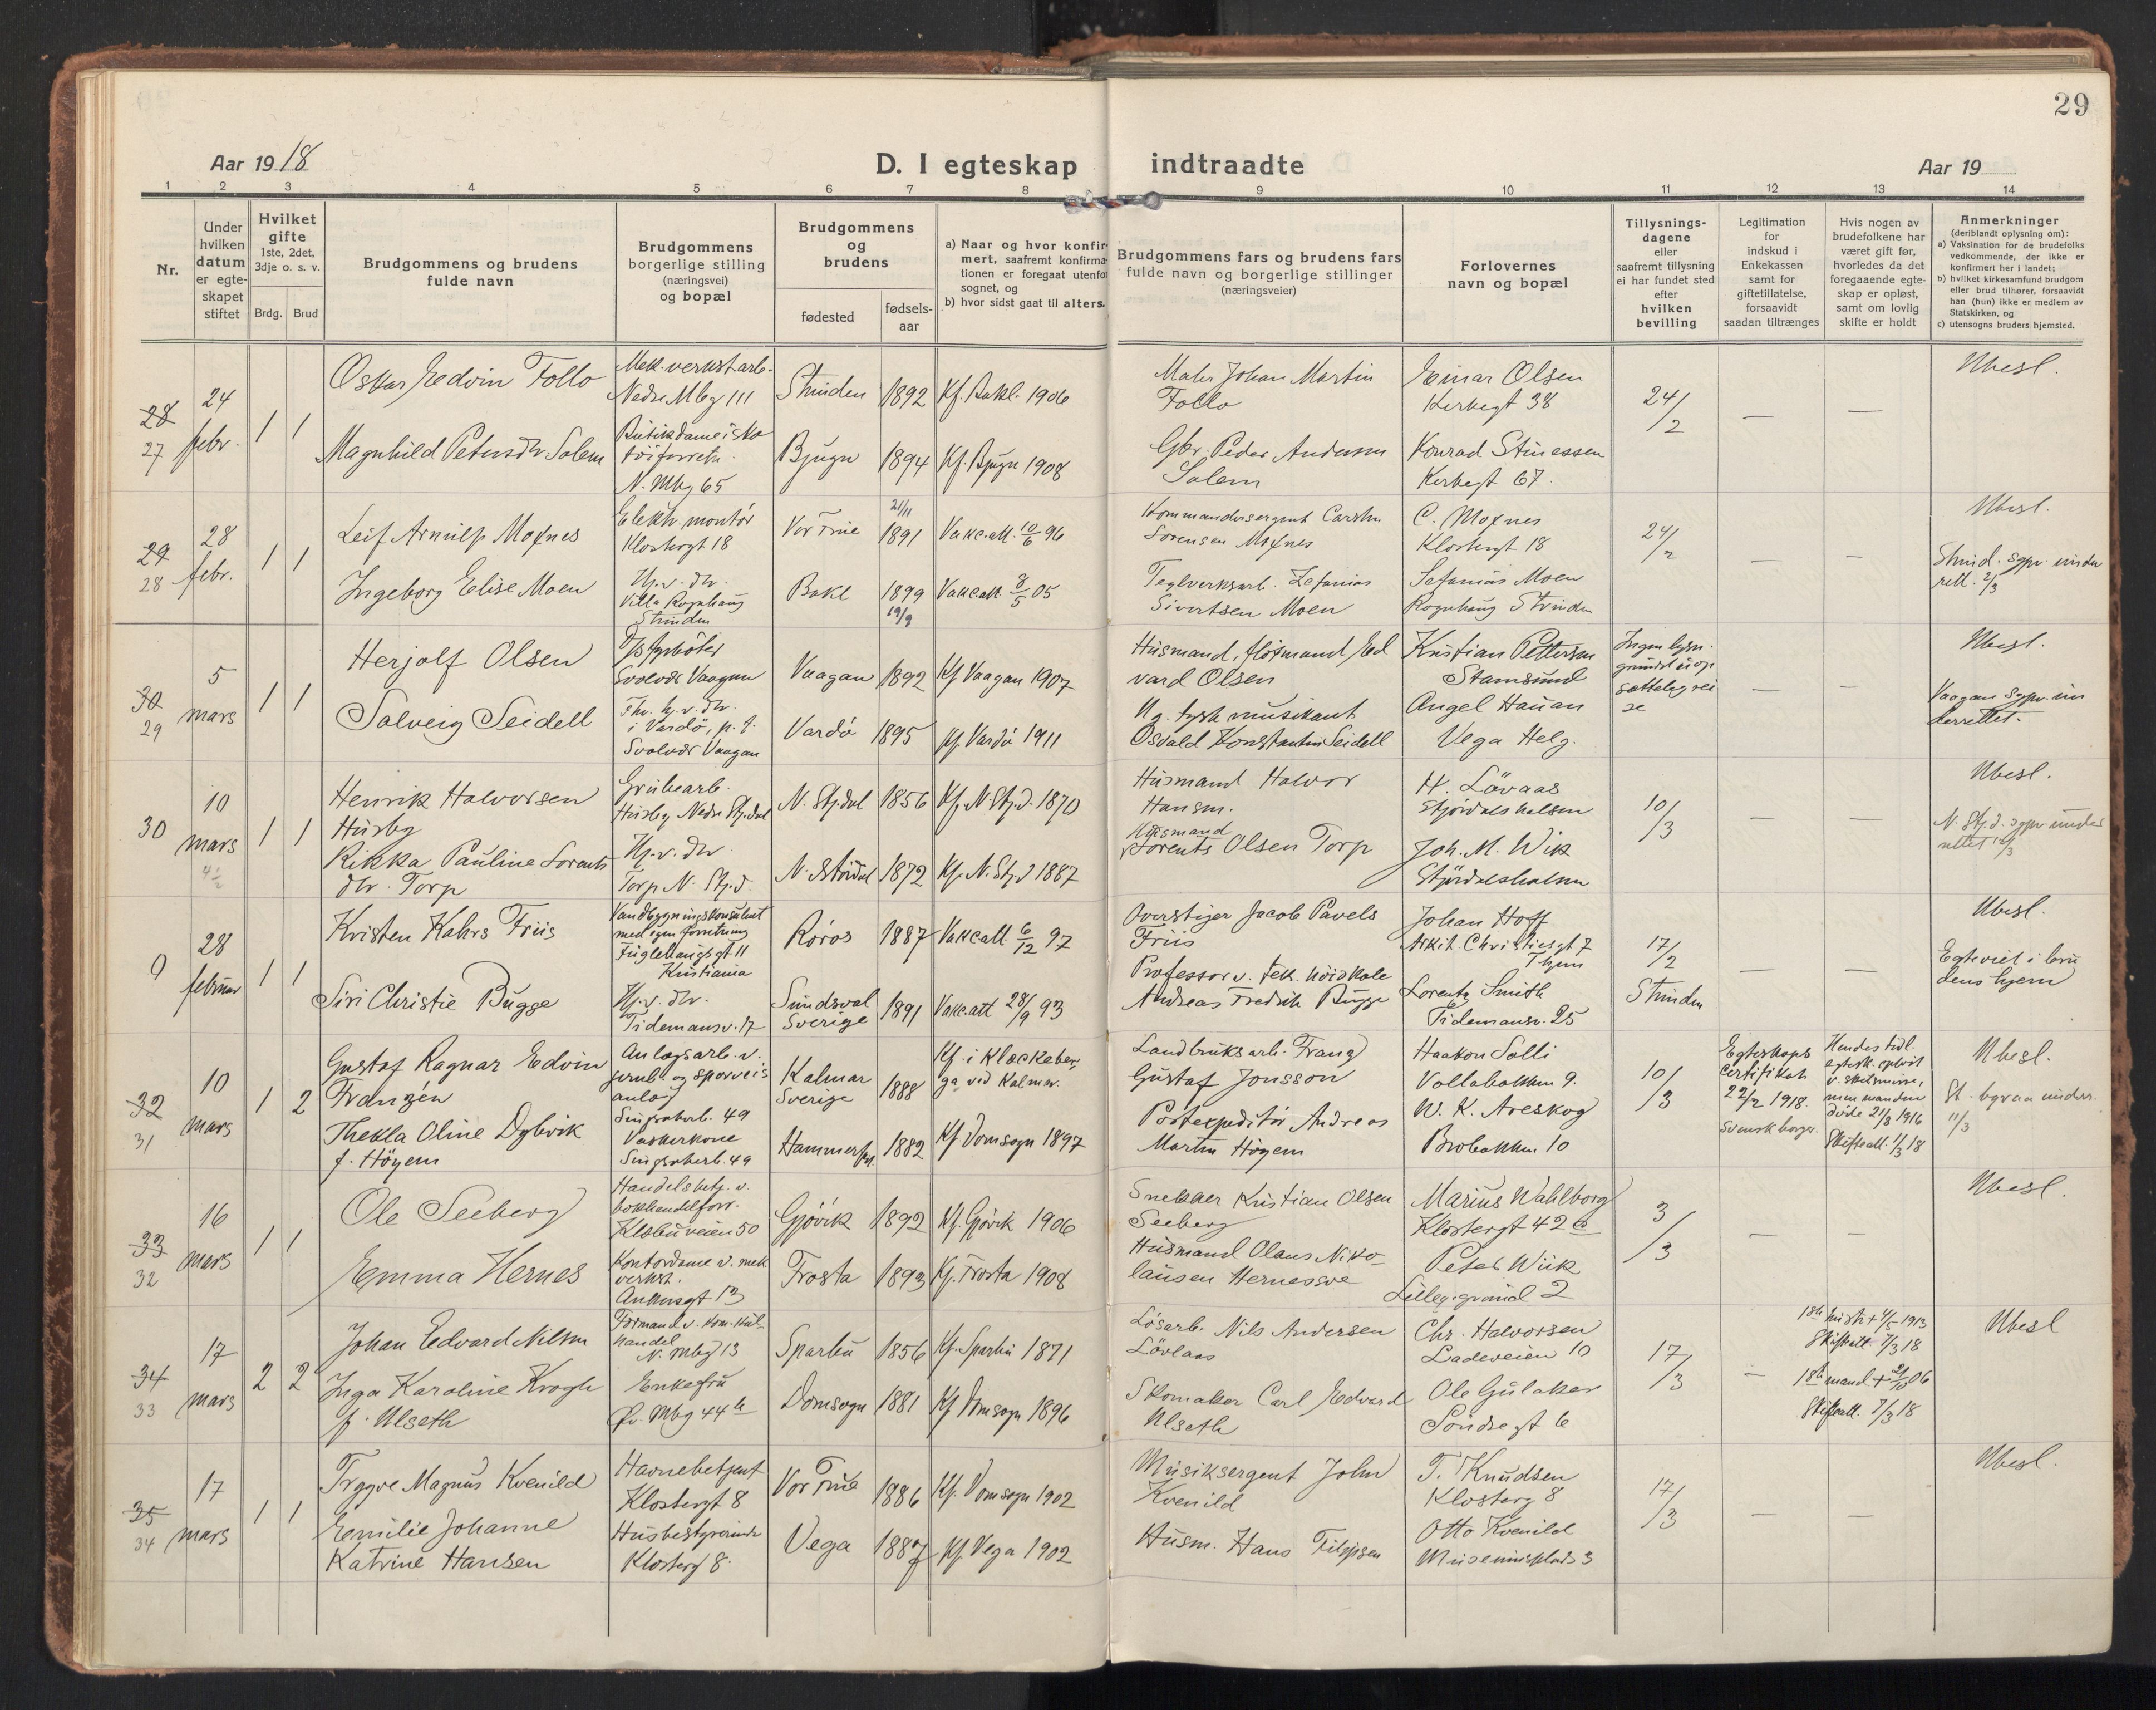 29
Aar 1918
D. I egteskap indtraadte
Aar 19
1 2 3 4 5 6 7 8 9 10 11 12 13 14
Nr.
Under
hvilken
datum
er egte-
skapet
stiftet
Hvilket
gifte
1ste, 2det,
3dje o. s. v.
Brdg. Brud
Brudgommens og brudens
fulde navn
Brudgommens
borgerlige stilling
(næringsvei)
og bopæl
Brudgommens
og
brudens
fødested
fødsels-
aar
a) Naar og hvor konfir-
mert, saafremt konfirma-
tionen er foregaat utenfor
sognet, og
b) hvor sidst gaat til alters.
Brudgommens fars og brudens fars
fulde navn og borgerlige stillinger
(næringsveier)
Forlovernes
navn og bopæl
Tillysnings-
dagene
eller
saafremt tillysning
ei har fundet sted
efter
hvilken
bevilling
Legitimation
for
indskud i
Enkekassen
samt for
giftetillatelse,
forsaavidt
saadan tiltrænges
Hvis nogen av
brudefolkene har
været gift før,
hvorledes da det
foregaaende egte-
skap er opløst,
samt om lovlig
skifte er holdt
Anmerkninger
(deriblandt oplysning om):
a) Vaksination for de brudefolks
vedkommende, der ikke er
konfirmert her i landet;
b) hvilket kirkesamfund brudgom
eller brud tilhører, forsaavidt
han (hun) ikke er medlem av
Statskirken, og
c) utensogns bruders hjemsted.
28
27
24
febr.
1 1
Oskar Edvin Follo
Mek. verkst.arb.
Nedre Mbg 111
Strinden
1892
Kf. Bakl. 1906
Maler Johan Martin
Follo
Einar Olsen
Kirkegt 38
24/2
—
—
Ubesl.
Magnhild Petersdtr Solem
Butikdame i sko
tøiforretn.
N. Mbg 65
Bjugn
1894
Kf. Bjugn 1908
Gbr. Peder Andersen
Solem
Konrad Stinessen
Kirkegt 67.
29
28
28
febr.
1 1
Leif Arnulf Moxnes
Elektr. montör
Klostergt 18
Vor Frue
21/11
1891
Vakc.att. 10/6 96
Kommandersergent Carsten
Sorensen Moxnes
C. Moxnes
Klostergt 18
24/2
—
—
Ubesl.
Strind. sgpr. under
rett. 2/3
Ingeborg Elise Moen
Hj.v. dtr.
Villa Rognhaug
Strinden
Bakl
1899
19/9
Vakc.att. 8/5 05
Teglverksarb. Zefanias
Sivertsen Moen
Sefanias Moen
Rognhaug Strinden
30
29
5
mars
1 1
Herjolf Olsen
D/s fyrbøter
Svolvær Vaagan
Vaagan
1892
Kf Vaagan 1907
Husmand, fløtmand Ed
vard Olsen
Kristian Pettersen
Stamsund
—
—
Ubesl.
Vaagan sgpr. un
derrettet.
Solveig Seidell
Fhv. hj.v. dtr.
i Vardö, p. t.
Svolvær Vaagan
Vardö
1895
Kf. Vardö 1911
Ug. tysk musikant
Osvald Konstantin Seidell
Angel Hauan
Vega Helg.
30
10
mars
4 1/2
1 1
Henrik Halvorsen
Husby
Grubearb.
Husby Nedre Stj.dal
N. Stj.dal
1856
Kf. N. Stj.d. 1870
Husmand Halvor
Hansen.
H. Lövaas
Stjördalshalsen
10/3
—
—
Ubesl.
N. Stj.d. sgpr under
rettet
Rikka Pauline Lorents
dtr. Torp
Hj.v. dtr
Torp N. Stj.d.
N. Stördal
1872
Kf. N. Stj.d 1887
Husmand
Lorents Olsen Torp
Joh. M. Wik
Stjördalshalsen
9
28
februar
1 1
Kristen Kahrs Friis
Vandbygningskonsulent
med egen forretning
Fuglehaugsgt 11
Kristiania
Røros
1887
Vakc.att 6/12 97
Overstiger Jacob Pavels
Friis
Johan Hoff
Arkit. Christiesgt 7
Thjem
17/2
Strinden
—
—
Ubesl.
Egteviet i bru
dens hjem
Siri Christie Bugge
Hj.v. dtr.
Tidemansv. 17
Sundsval
Sverige
1891
Vakc.att 28/9 93
Professor v. tek. höiskole
Andreas Fredrik Bugge
Lorentz Smith
Tidemansv. 25
32
31
10
mars
1 2
Gustaf Ragnar Edvin
Franzén
Anlægsarb. v.
jernb. og sporveis
anlæg
Singsakerb. 49
Kalmar
Sverige
1888
Kf. i Klackeber
ga ved Kalmar.
Landbruksarb. Franz
Gustaf Jonsson
Haakon Solli
Vollabakken 9.
10/3
Egteskaps
certifikat
22/2 1918.
Svensk borger.
Hendes tidl.
egtesk. opløst
v. skilsmisse,
men manden
døde 21/3 1916
Skifteatt. 1/3 18
Ubesl.
St. byraa underr.
11/3
Thekla Oline Dybvik
f. Höyem
Vaskerkone
Singsakerb. 49
Hammerfest.
1882
Kf Domsogn 1897
Postexpeditör Andreas
Martin Höyem
W. K. Areskog
Brobakken 10
33
32
16
mars
1 1
Ole Seeberg
Handelsbetj. v.
bokhandelforr.
Klæbuveien 50
Gjövik
1892
Kf. Gjövik 1906
Snekker Kristian Olsen
Seeberg
Marius Wahlborg
Klostergt 42 a
3/3
—
—
Ubesl.
Emma Hernes
Kontordame v. mek
verkst.
Ankersgt 13
Frosta
1893
Kf. Frosta 1908
Husmand Olaus Niko
lausen Hernesøve
Peter Wiik
Lilleg. grand 2
34
33
17
mars
2 2
Johan Edvard Nilsen
Formand v. kom. kul-
handel
N. Mbg 13
Sparbu
1856
Kf. Sparbu 1871
Lösarb. Nils Andersen
Lövlaas
Chr. Halvorsen
Ladeveien 10
17/3
—
1ste hustr. + 4/5 1913
Skifteatt. 7/3 18
Ubesl
Inga Karoline Krogh
f. Ulseth
Enkefru
Øv. Mbg 44 b
Domsogn
1881
Kf Domsogn 1896
Skomaker Carl Edvard
Ulseth
Ole Gulaker
Söndregt 6
1ste mand + 21/10 06
Skifteatt. 7/3 18
35
34
17
mars
1 1
Trygve Magnus Kvenild
Havnebetjent
Klostergt 8
Vor Frue
1886
Kf. Domsogn 1902
Musiksergent John
Kvenild
T. Knudsen
Klosterg 8
17/3
—
—
Ubesl.
Emilie Johanne
Katrine Hansen
Husbestyrerinde
Klosterg 8.
Vega
1887
Kf Vega 1902
Husm. Hans Filipsen
Otto Kvenild
Museumsplads 3